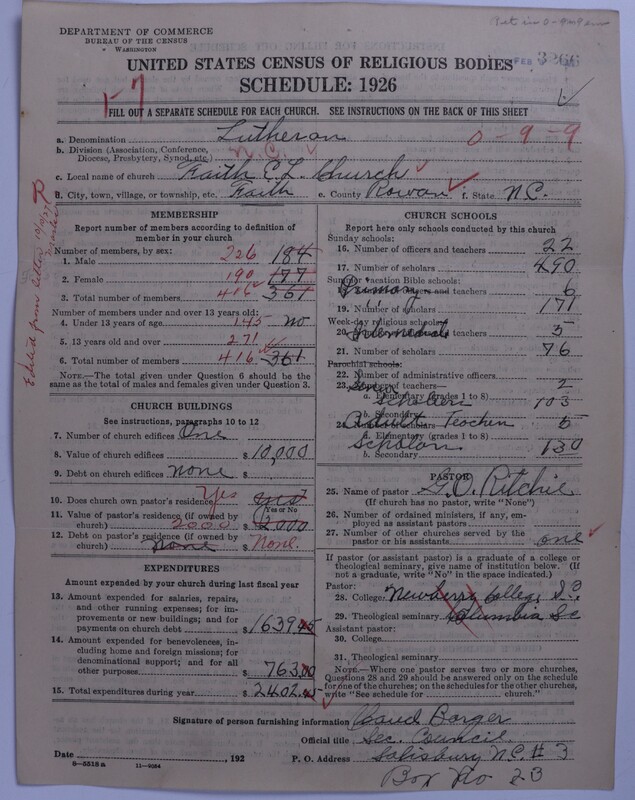 DEPARTMENT OF COMMERCE
BUREAU OF THE CENSUS
WASHINGTON
FEB
3266
UNITED STATES CENSUS OF RELIGIOUS BODIES
SCHEDULE: 1926
1-7
FILL OUT A SEPARATE SCHEDULE FOR EACH CHURCH. SEE INSTRUCTIONS ON THE BACK OF THIS SHEET
a. Denomination Lutheran 0-9-9
b. Division (Association, Conference, Diocese, Presbytery, Synod, etc.) N.C.
c. Local name of church Faith E. L. Church
d. City, town, village, or township, etc. Faith e. County Rowan f. State N.C.
Edited from letter
MEMBERSHIP
Report number of members according to definition of member in your church
Number of members, by sex:
1. Male 226 184
2. Female 190 177
3. Total number of members 416 361
Number of members under and over 13 years old:
4. Under 13 years of age 145 no
5. 13 years old and over 271
6. Total number of members 416 361
NOTE.—The total given under Question 6 should be the same as the total of males and females given under Question 3.
CHURCH BUILDINGS
See instructions, paragraphs 10 to 12
7. Number of church edifices One
8. Value of church edifices $ 10,000
9. Debt on church edifices none $
10. Does church own pastor's residence? Yes yes
Yes or No
11. Value of pastor's residence (if owned by church) 2000 $ 2000
12. Debt on pastor's residence (if owned by church) none $ None.
EXPENDITURES
Amount expended by your church during last fiscal year
13. Amount expended for salaries, repairs, and other running expenses; for improvements or new buildings; and for payments on church debt $ 1639.45
14. Amount expended for benevolences, including home and foreign missions; for denominational support; and for all other purposes $ 763.00
15. Total expenditures during year $ 2402.45
CHURCH SCHOOLS
Report here only schools conducted by this church
Sunday schools:
16. Number of officers and teachers 22
17. Number of scholars 490
Summer vacation Bible schools:
Primary teachers and teachers 6
19. Number of scholars 171
Week-day religious schools:
20. Intermediate 5
21. Number of scholars 76
Parochial schools:
22. Number of administrative officers
23. Senior of teachers— 2
a. Elementary (grades 1 to 8) Scholars 103
b. Secondary
24. Adult Teacher scholars 5
a. Elementary (grades 1 to 8)
Scholars b. Secondary 130
PASTOR
25. Name of pastor G. O. Ritchie
(If church has no pastor, write "None")
26. Number of ordained ministers, if any, employed as assistant pastors
27. Number of other churches served by the pastor or his assistants one
If pastor (or assistant pastor) is a graduate of a college or theological seminary, give name of institution below. (If not a graduate, write "No" in the space indicated.)
Pastor:
28. College Newberry College S.C.
29. Theological seminary Columbia SC
Assistant pastor:
30. College
31. Theological seminary
NOTE.—Where one pastor serves two or more churches, Questions 28 and 29 should be answered only on the schedule for one of the churches; on the schedules for the other churches, write "See schedule for church."
Signature of person furnishing information Barger
Official title Sec. Council
Date , 192 P. O. Address Salisbury N.C. # 3
Box No 23
8—5518 a 11—9084